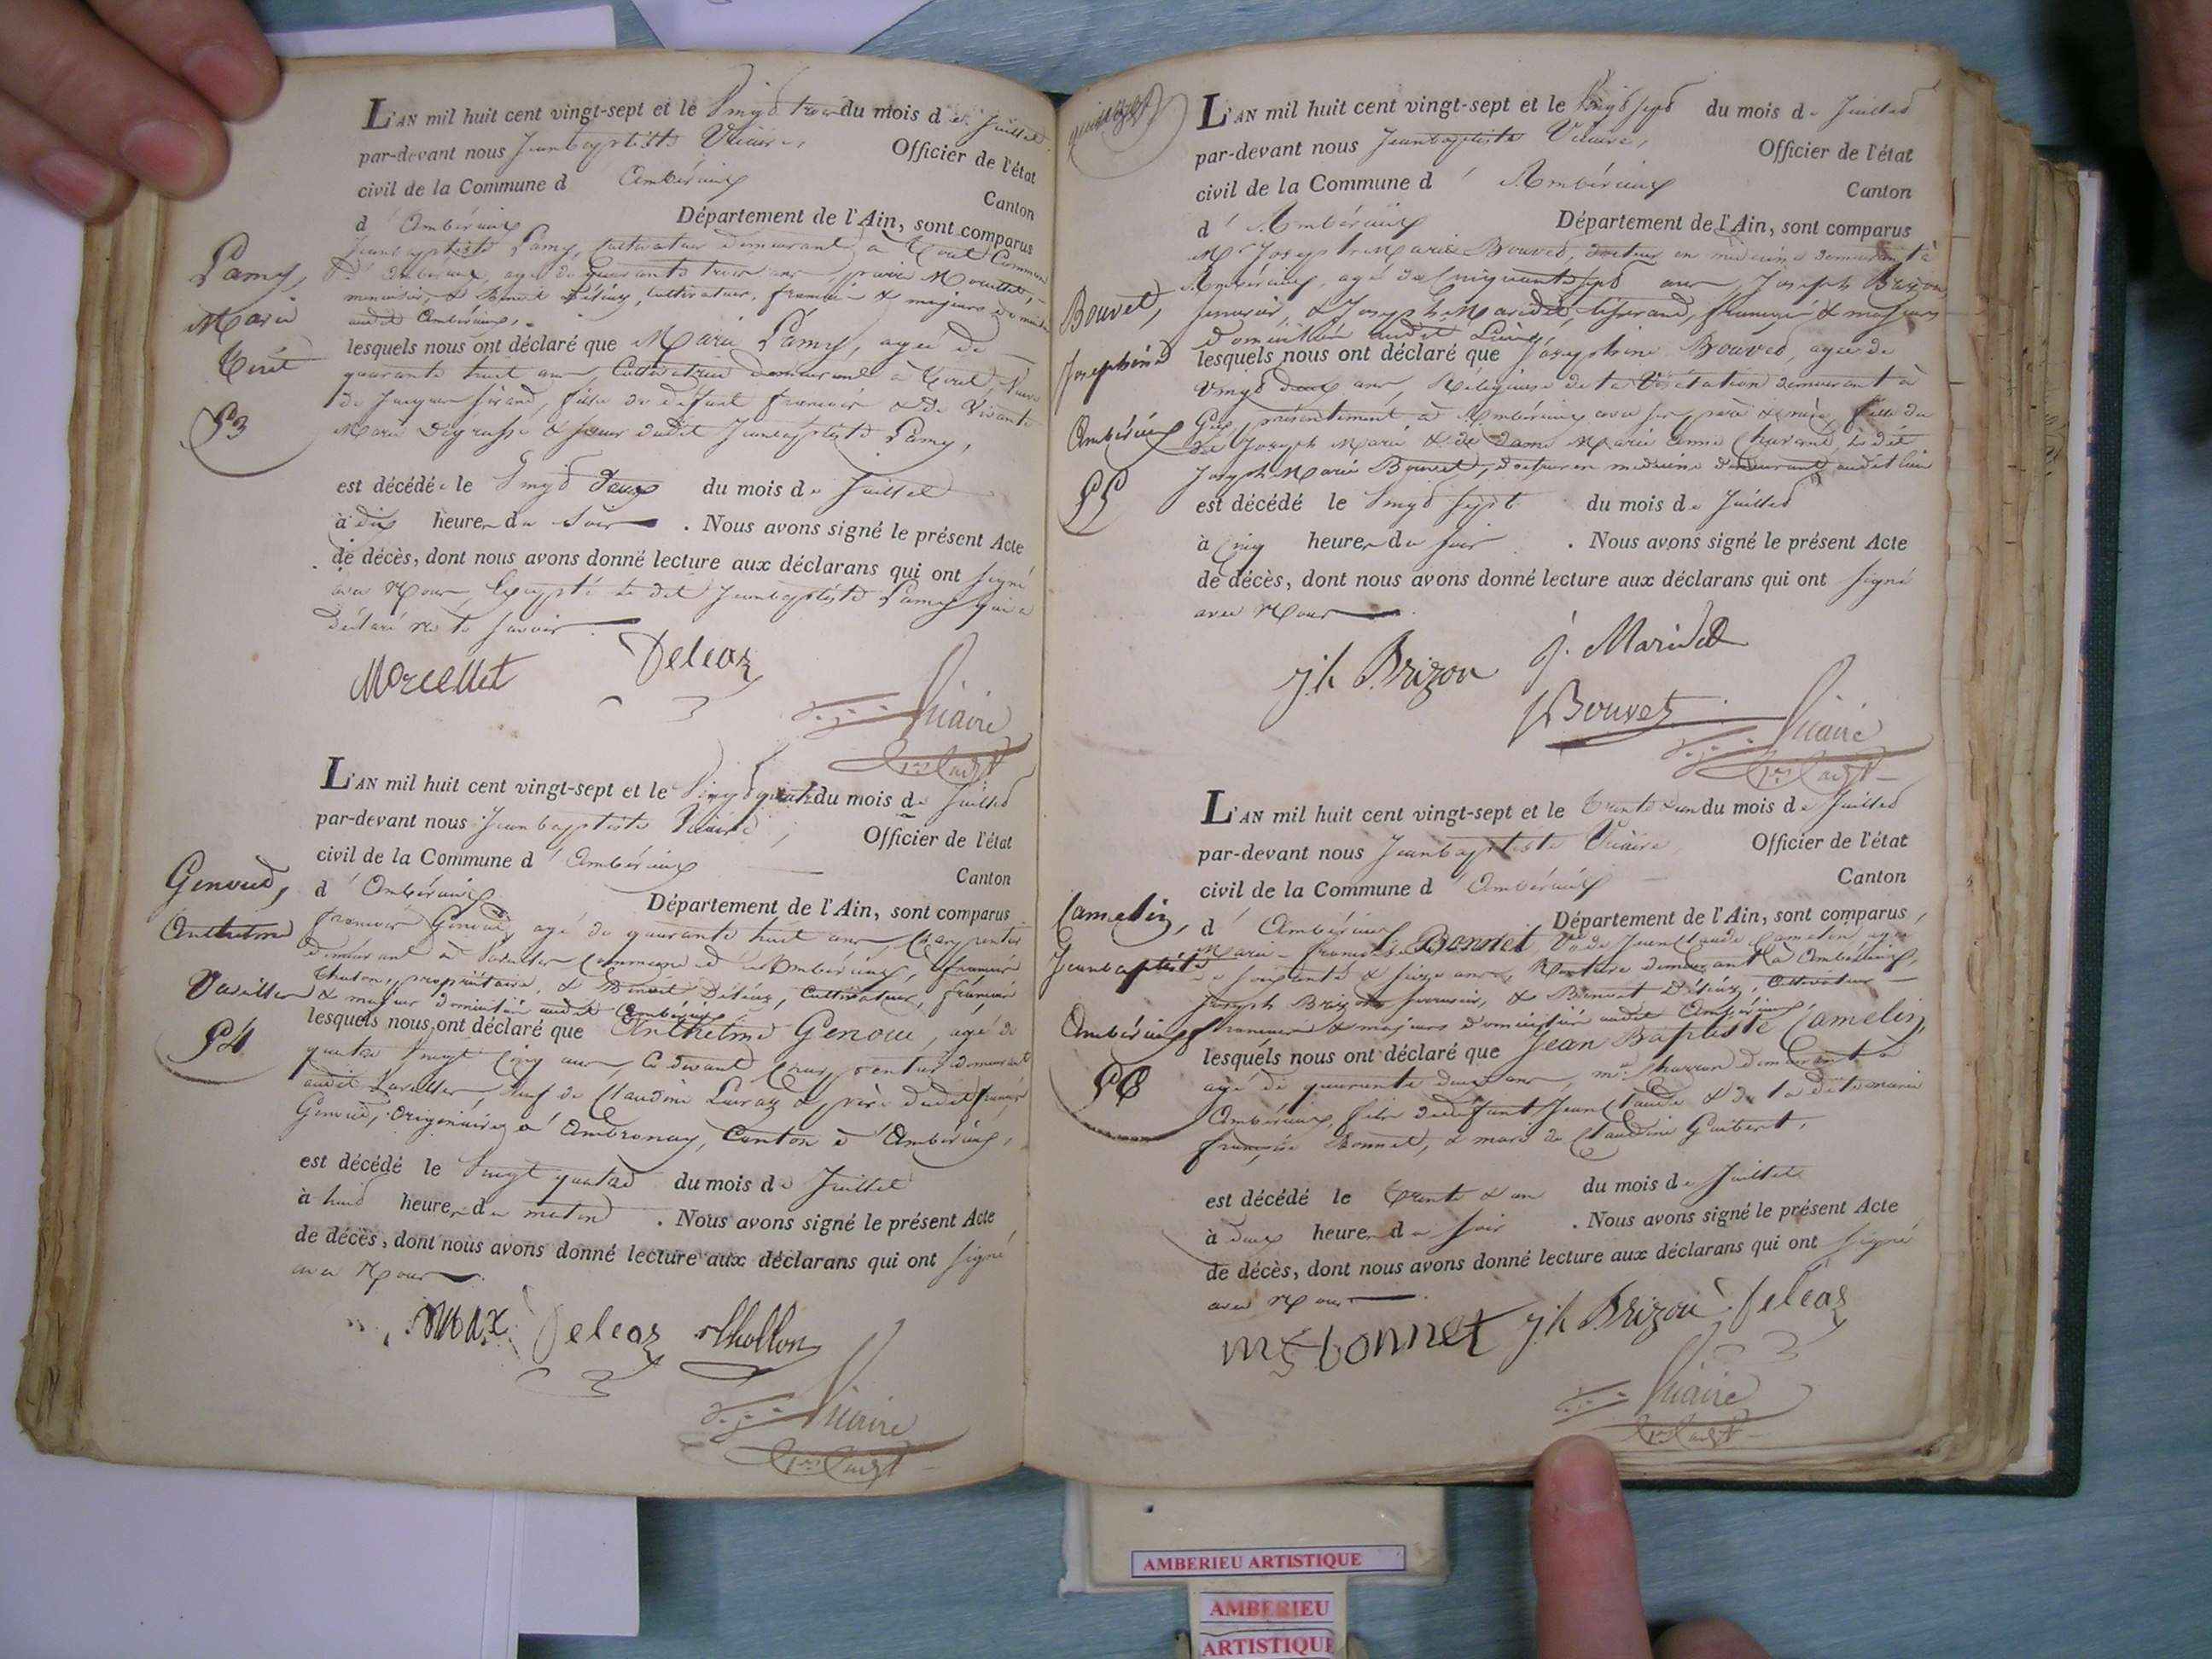 L'AN mil huit cent vingt-sept et le Vingt trois du mois de Juillet
par-devant nous Jeanbaptiste Vicaire, Officier de l'état
civil de la Commune d Ambérieux Canton
d' Ambérieux Département de l'Ain, sont comparus
Jeanbaptiste Lamy, Cultivateur demeurant à Tiret Commune
d'Ambérieux, agé de quarante trois ans,
menuisier, & Benoit Déléaz, cultivateur, français & majeurs
audit Ambérieux,
lesquels nous ont déclaré que Marie Lamy, agée de
quarante huit ans Cultivatrice demeurant à Tiret, Veuve
de Jacques Girand, fille de défunt françois & de Vivante
Marie & sœur dudit Jeanbaptiste Lamy,
est décédée le Vingt deux du mois de Juillet
à dix heures du Soir. Nous avons signé le présent Acte
de décès, dont nous avons donné lecture aux déclarans qui ont signé
avec Nous, Excepté le dit Jeanbaptiste Lamy qui a
déclaré ne le savoir
Lamy,
Marie
Tiret
53
Morcellet Deleaz
Vicaire
L'AN mil huit cent vingt-sept et le Vingt quatre du mois de Juillet
par-devant nous Jeanbaptiste Vicaire, Officier de l'état
civil de la Commune d' Ambérieux Canton
d' Ambérieux Département de l'Ain, sont comparus
françois Genoud, agé de quarante huit ans, Charpentier
demeurant à Vareilles Commune d'Ambérieux, françois
propriétaire, & Benoit Déléaz, Cultivateur, français
& majeurs domiciliés audit Ambérieux,
lesquels nous ont déclaré que Anthelme Genoud, agé de
quatre Vingt Cinq ans, Ci devant Charpentier demeurant
audit Vareilles, Veuf de Claudine & père dudit françois
Genoud, Originaire d'Ambronay, Canton d'Ambérieux,
est décédé le Vingt quatre du mois de Juillet
à huit heures du matin. Nous avons signé le présent Acte
de décès, dont nous avons donné lecture aux déclarans qui ont signé
avec Nous
Genoud,
Anthelme
Vareilles
54
Deleaz
Vicaire
L'AN mil huit cent vingt-sept et le Vingt sept du mois de Juillet
par-devant nous Jeanbaptiste Vicaire, Officier de l'état
civil de la Commune d' Ambérieux Canton
d' Ambérieux Département de l'Ain, sont comparus
Mr Joseph Marie Bouvet, docteur en médecine demeurant à
Ambérieux, agé de Cinquante sept ans Joseph Brizon
& Joseph Maridet, tisserand, français & majeurs
domiciliés audit Lieu,
lesquels nous ont déclaré que Josephine Bouvet, agée de
Vingt deux ans, Religieuse de la Visitation demeurant à
Gex, présentement à Ambérieux avec ses père & mère, fille du
Joseph Marie & de dame Marie Anne le dit
Joseph Marie Bouvet, docteur en médecine demeurant audit lieu
est décédé le Vingt Sept du mois de Juillet
à Cinq heures du Soir. Nous avons signé le présent Acte
de décès, dont nous avons donné lecture aux déclarans qui ont signé
avec Nous
Bouvet,
Josephine
Ambérieux
55
jh Brizon J. Maridet
Bouvet Vicaire
L'AN mil huit cent vingt-sept et le Trente & un du mois de Juillet
par-devant nous Jeanbaptiste Vicaire, Officier de l'état
civil de la Commune d' Ambérieux Canton
d' Ambérieux Département de l'Ain, sont comparus
Marie-françoise Bonnet Ve de Jean Claude Camelin, agée
de soixante & seize ans, demeurant à Ambérieux,
Joseph Brizon & Benoit Déléaz, Cultivateur
français & majeurs domiciliés audit Ambérieux,
lesquels nous ont déclaré que Jean Baptiste Camelin,
agé de quarante deux ans, me charron demeurant à
Ambérieux, fils de défunt Jean Claude & de la dite marie
françoise Bonnet, & mari de Claudine Guibert,
est décédé le Trente & un du mois de Juillet
à deux heures du Soir. Nous avons signé le présent Acte
de décès, dont nous avons donné lecture aux déclarans qui ont signé
avec Nous
Camelin,
Jeanbaptiste
Ambérieux
56
mf bonnet jh Brizon Deleaz
Vicaire
AMBERIEU ARTISTIQUE
AMBERIEU
ARTISTIQUE